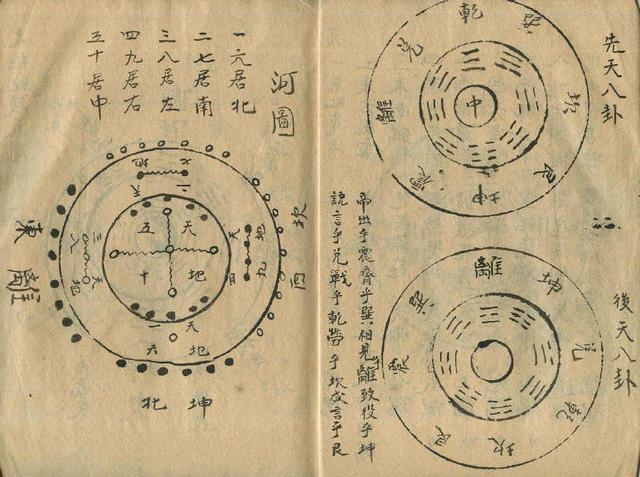 先天八卦
乾
兌
離
坎
艮
坤
中
後天八卦
離
坤
兌
乾
坎
艮
震
巽
帝出乎震齊乎巽相見乎離致役乎坤
說言乎兌戰乎乾勞乎坎成言乎艮
河圖
一六居北
二七居南
三八居左
四九居右
五十居中
坎西
東離
北坤
地七
二天
地九
天四
天五
地十
三八
天地
天一
地六